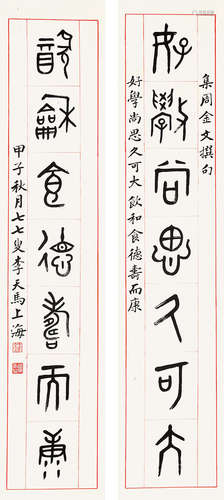 集周金文撰句
好學尚思久可大
好學尚思久可大飲和食德壽而康
飲龢食德壽而康
甲子秋月七七叟李天馬上海